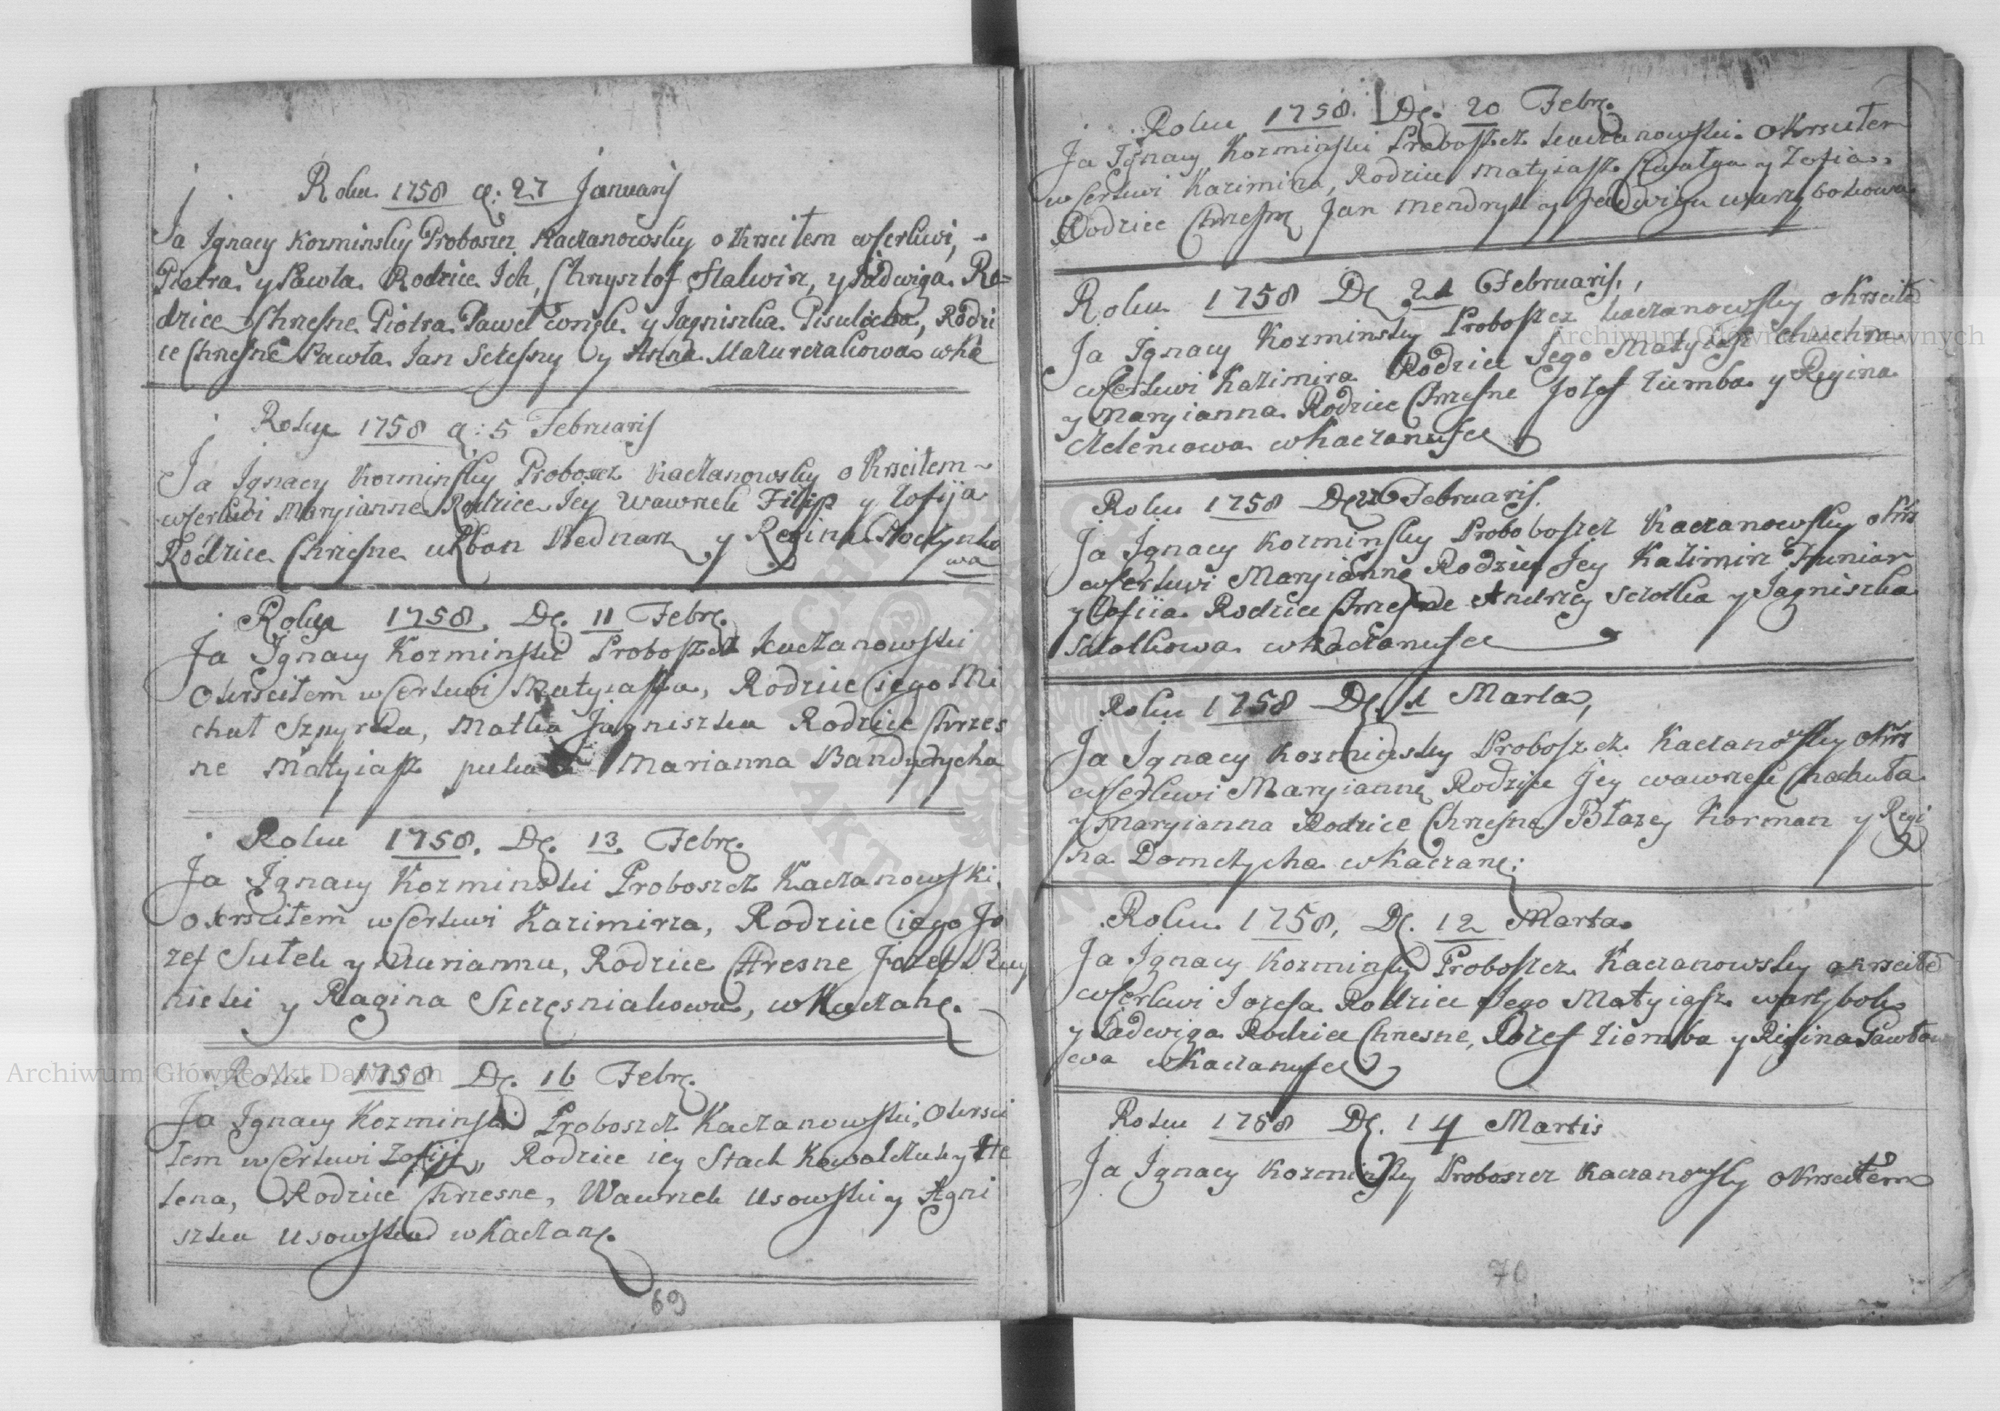 Roku 1758 d: 27 Januaris
Ja Ignacy Kozminsky Proboszcz Kaczanowsky okrsciłem w Cerkwi,
Piotra y Pawła Rodzice Ich, Chrysztof Stalwir, y Jadwiga Ro=
dzice Chrzesne Piotra Paweł y Jagniszka Rodzi
ce Chrzesne Pawła Jan Sczesny y Anna Mazurczakowa wKa
Roku 1758 d: 5 Februaris
Ja Ignacy Kozminsky Proboszcz Kaczanowsky okrsciłem
w Cerkwi Maryianne Rodzice Jey Wawrzek Filip y Zofija
Rodzice Chrzesne Urban Bednarz y Regina
wa
Roku 1758. D. 11 Febr.
Ja Ignacy Kozminski Proboszcz Kaczanowski
Okrsciłem w Cerkwi Matyiasza, Rodzice jego Mi
chał Sznyrka, Matka Jagniszka Rodzice Chrzes
ne Matyiasz Marianna Bandyrycha
Roku 1758. D. 13. Febr.
Ja Ignacy Kozminski Proboszcz Kaczanowski
okrsciłem w Cerkwi Kazimirza, Rodzice iego Jo
zef Sutek y Marianna, Rodzice Chrzesne Jozef
nicki y Ragina Szczęsniakowa, w Kaczan.
Roku 1758 D. 16 Febr.
Ja Ignacy Kozminski Proboszcz Kaczanowski, Okrsci
łem w Cerkwi Zofiją, Rodzice iey Stach Kowalczuk y He
lena, Rodzice Chrzesne, Wawrzek Usowski y Agni
szka Usowska w Kaczan.
69
Roku 1758. D. 20 Febr.
Ja Ignacy Kozminski Proboszcz Kaczanowski Okrsciłem
w Cerkwi Kazimirza, Rodzice Matyiasz y Zofia,
Rodzice Chrzesn Jan Mendryk y Jadwiga Warzybokowa
Roku 1758 D 21 Februaris,
Ja Ignacy Kozminsky Proboszcz kaczanowsky okrsciłe
w Cerkwi Kazimira Rodzice Jego Matyiasz Chuchra
y Maryianna Rodzice Chrzesne Jozef Ziemba y Regina
Zieleniowa w Kaczanusce
Roku 1758 D 26 Februaris
Ja Ignacy Kozminsky Proboboszcz Kaczanowsky okrs
w Cerkwi Maryianne Rodzice Jey Kazimirz
y Zofiia Rodzice Chrzesne Andrzey Sczotka y Jagniszka
Sczotkowa w Kaczanusce
Roku 1758 D. 1 Marta,
Ja Ignacy Kozminsky Proboszcz Kaczanowsky okrs
w Cerkwi Maryianne Rodzice Jey Wawrzek Chachuła
y Maryianna Rodzice Chrzesne Błazey Korman y Regi
na Domczycha w Kaczane:
Roku 1758, D. 12 Marta
Ja Ignacy Kozminsky Proboszcz Kaczanowsky okrsciłe
w Cerkwi Jozefa Rodzice Jego Matyiasz Warzybok
y Jadwiga Rodzice Chrzesne, Jozef Ziemba y Regina Pawłow
wa w Kaczanusce
Roku 1758 D. 14 Martis
Ja Ignacy Kozminsky Proboszcz Kaczanowsky okrsciłem
70
Archiwum Główne Akt Dawnych
Archiwum Główne Akt Dawnych